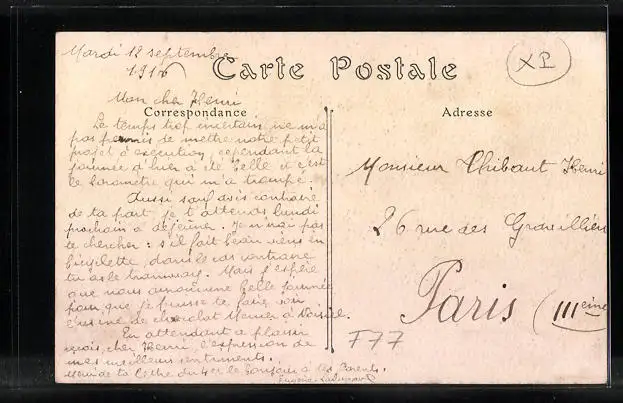 Mardi 18 septembre
191
XP
Carte Postale
Mon cher Henri
Correspondance
Adresse
Le temps trop incertain ne m'a
pas permis de mettre notre petit
projet à exécution, cependant la
journée d'hier a été belle et c'est
le baromètre qui m'a trompé.
Aussi sauf avis contraire
de ta part, je t'attends lundi
prochain à déjeuner. Je n'irai pas
te chercher : s'il fait beau viens en
bicyclette, dans le cas contraire
tu as le tramway. Mais j'espère
que nous aurons une belle journée
pour que je puisse te faire voir
l'usine de chocolat Menier à Noisiel.
En attendant ce plaisir
reçois, cher Henri, l'expression de
mes meilleurs sentiments.
Merci de ta lettre du 4 et le bonjour à tes Parents.
Eugène
Monsieur Thibaut Henri
26 rue des Gravilliers
Paris (IIIeme
F77